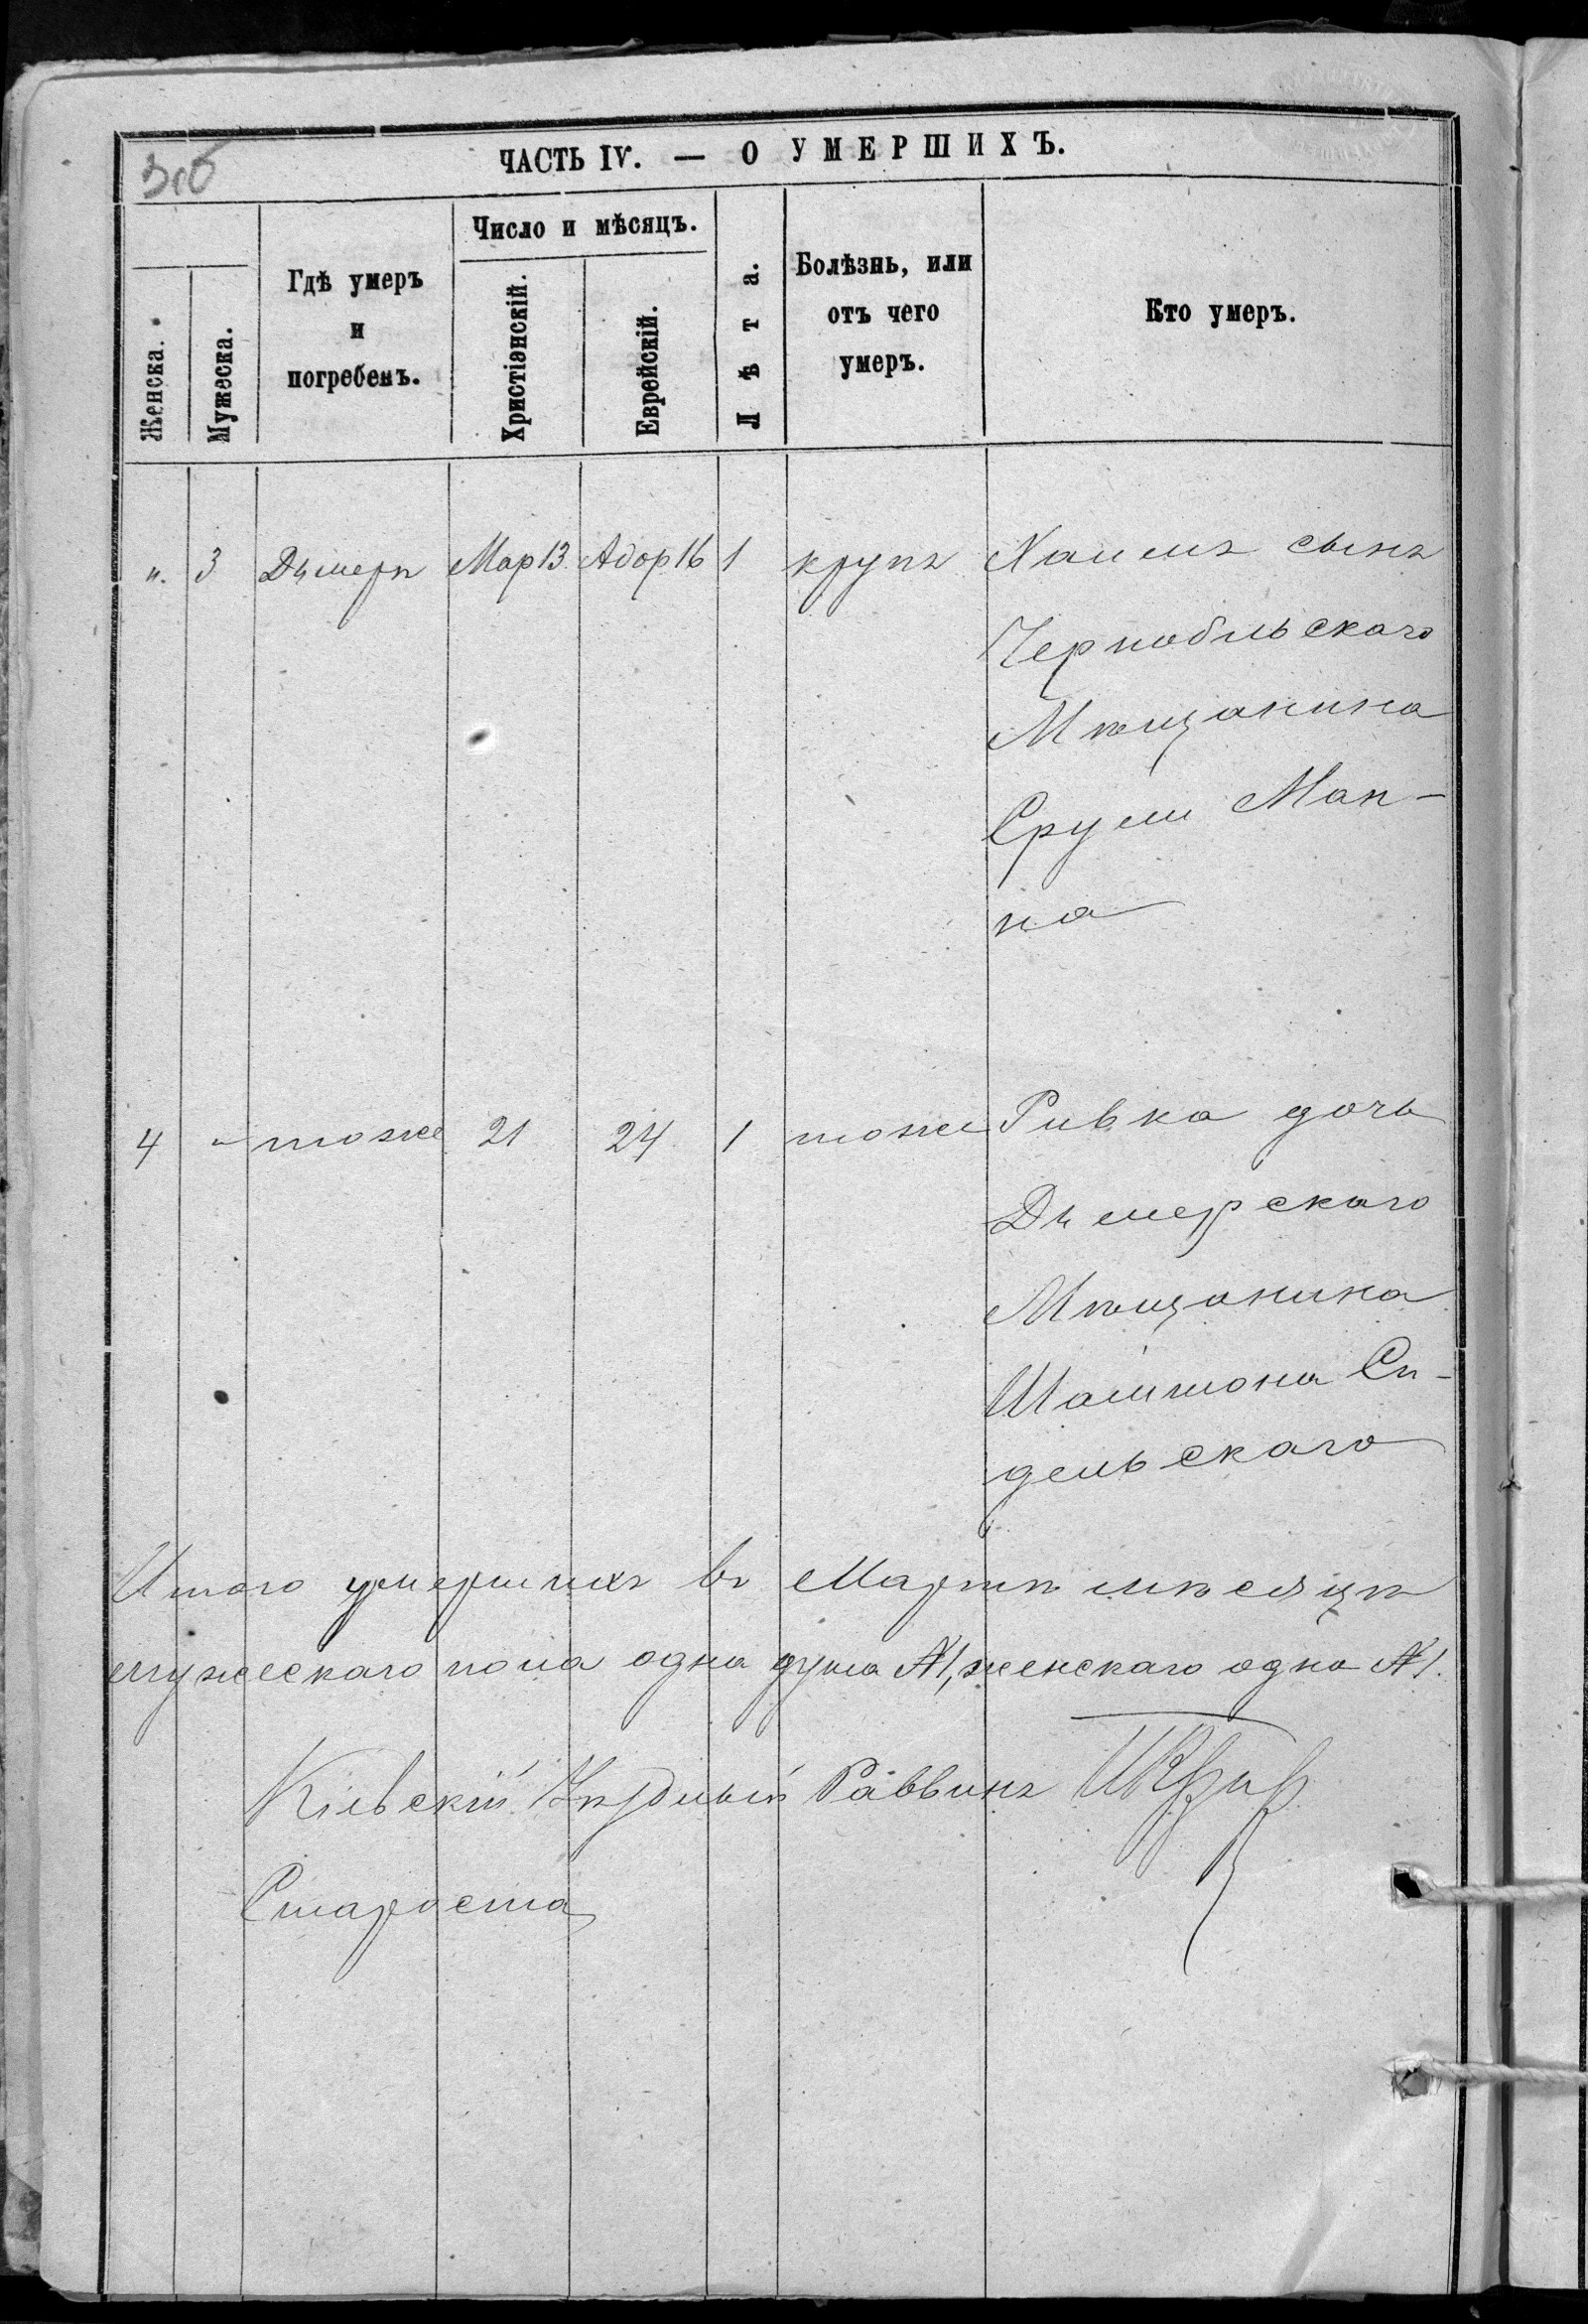 ЧАСТЬ IV. — О УМЕРШИХЪ.
Женска.
Мужеска.
Гдѣ умеръ
и
погребенъ.
Число и мѣсяцъ.
Христіанскій.
Еврейскій.
Лѣта.
Болѣзнь, или
отъ чего
умеръ.
Кто умеръ.
". 3 Дымерѣ Мар 13 Адор 16 1 крупъ Хаимъ сынъ
Чернобильскаго
Мѣщанина
Срули Ман-
на
4 " тоже 21 24 1 тоже Ривка дочь
Дымерскаго
Мѣщанина
Шаміиона Си-
дельскаго
Итого умершихъ въ Мартѣ мѣсяцѣ
мужескаго пола одна душа №1, женскаго одна №1.
Кіевскій Уѣздный Раввинъ
Староста